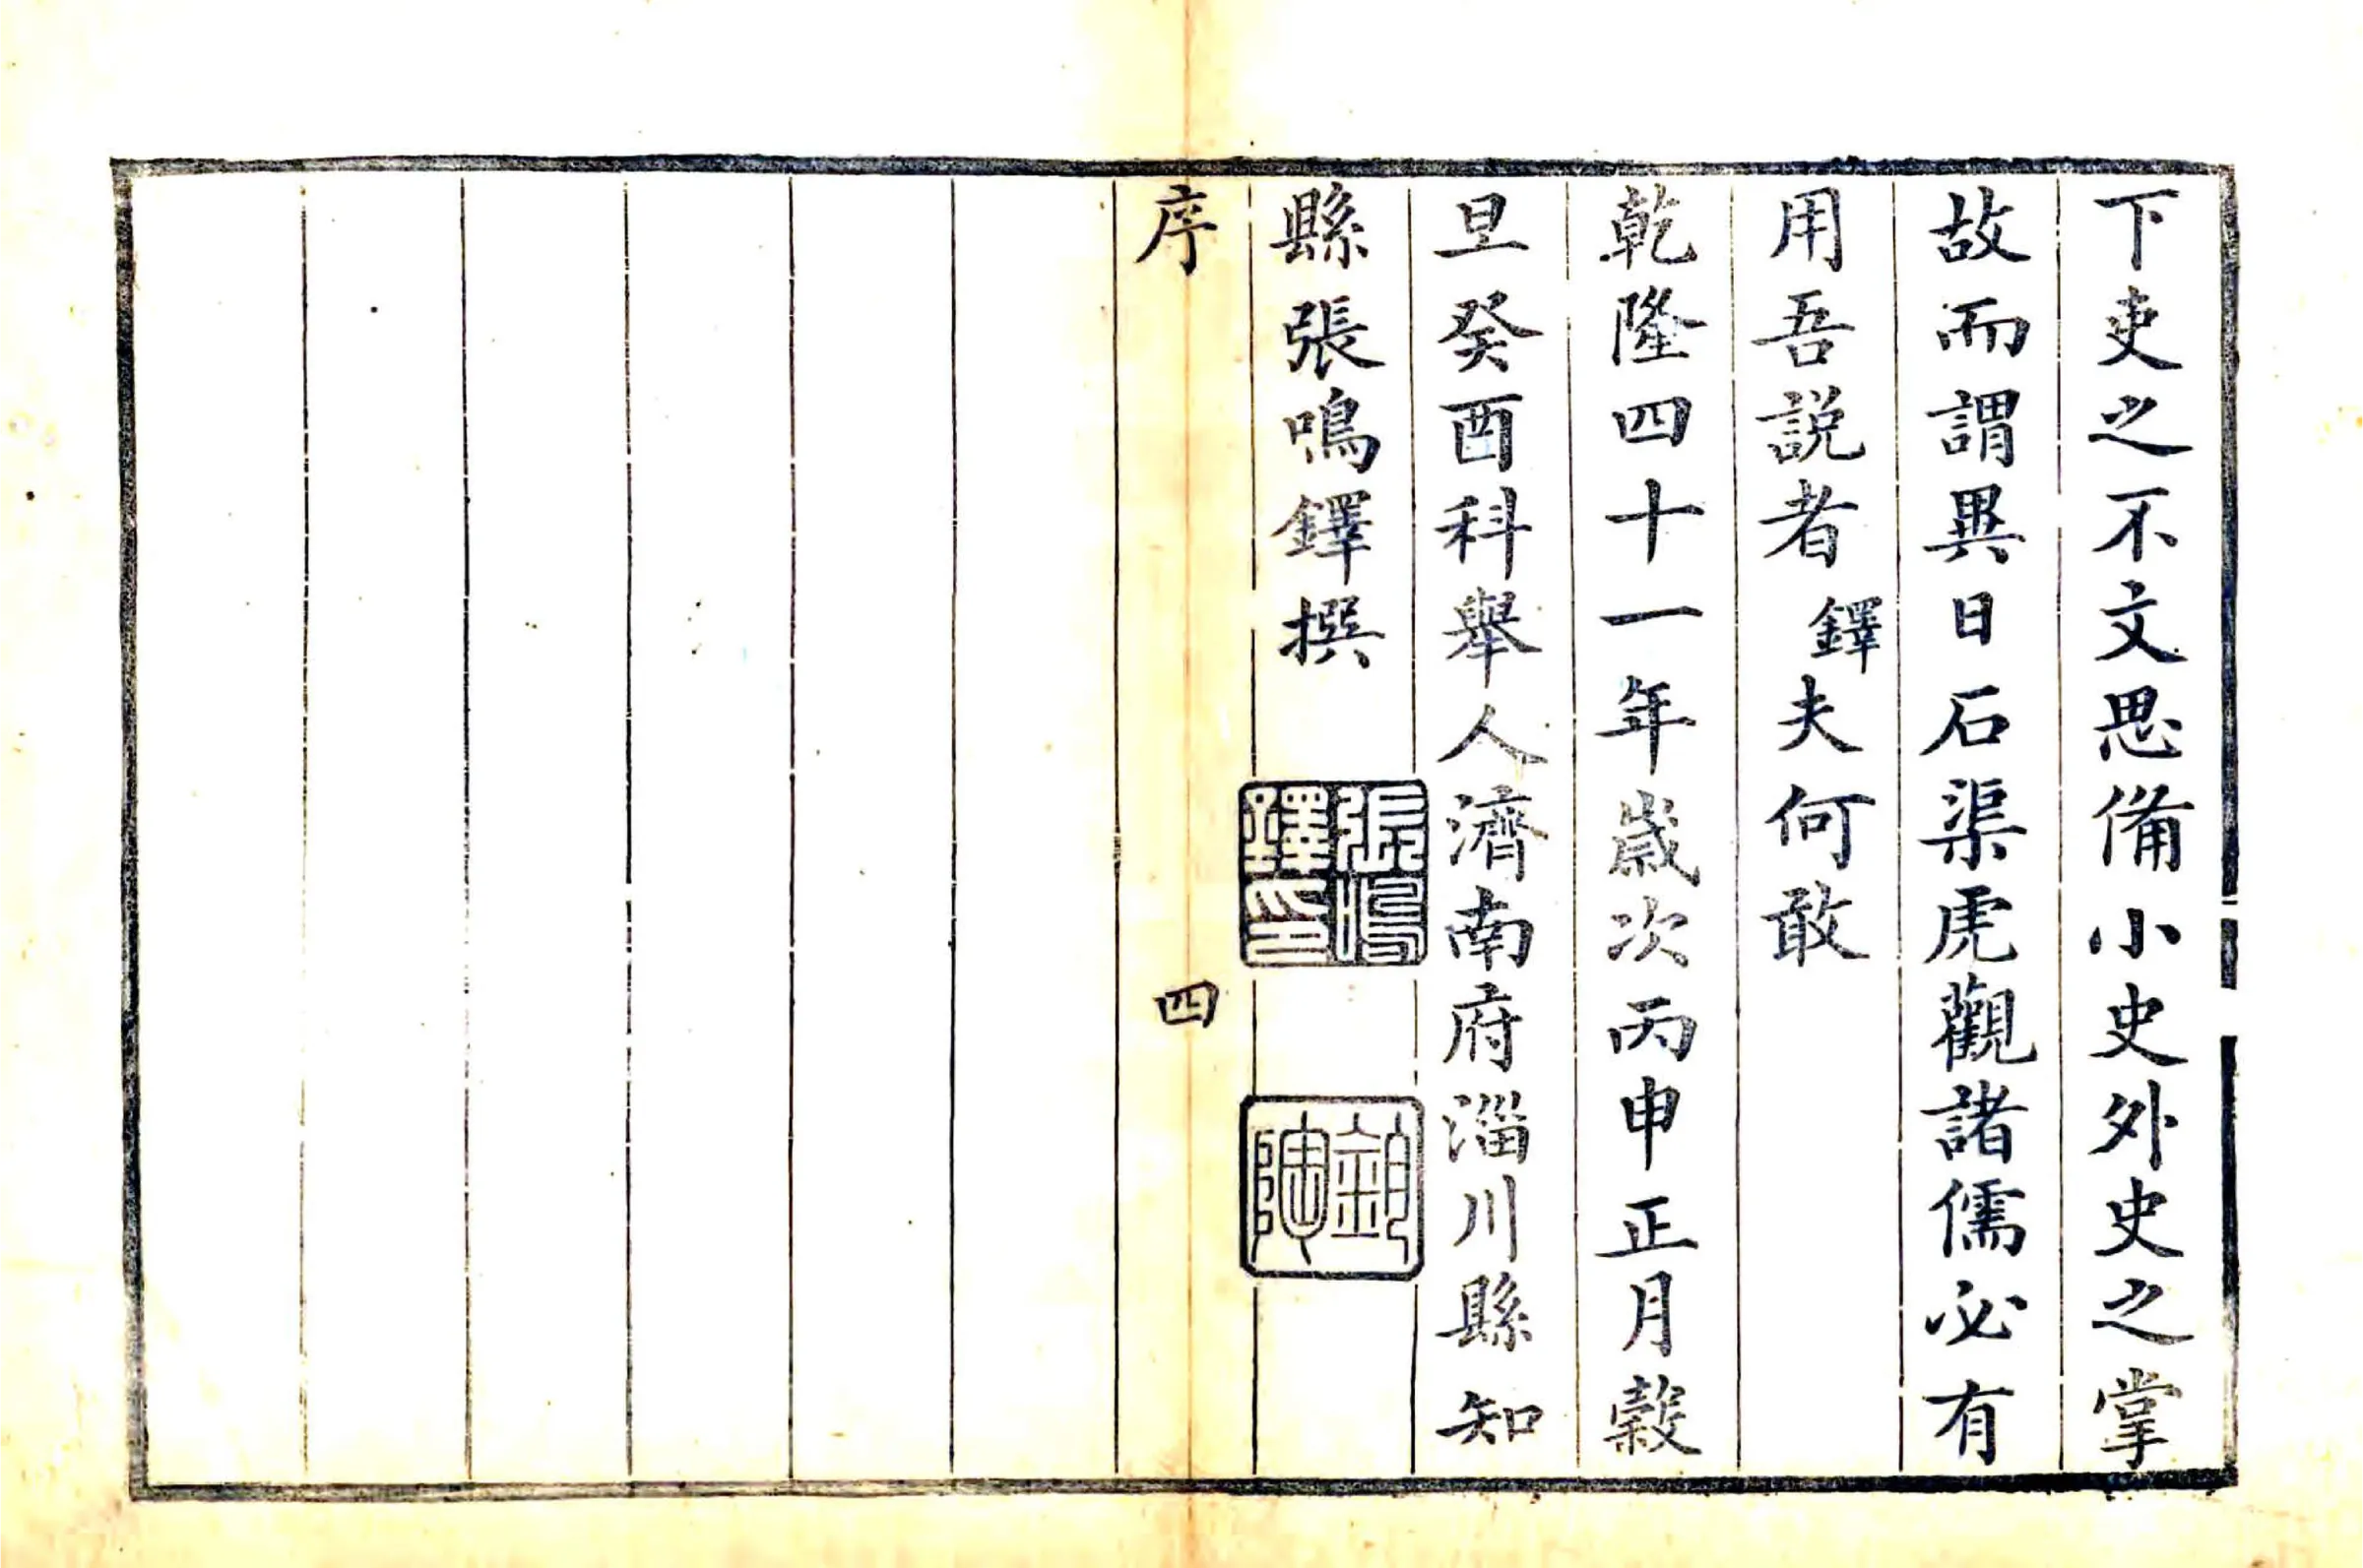 下吏之不文思備小史外史之掌
故而謂異日石渠虎觀諸儒必有
用吾説者鐸夫何敢
乾隆四十一年歲次丙申正月穀
旦癸酉科舉人濟南府淄川縣知
縣張鳴鐸撰
張鳴
鐸印
序 四